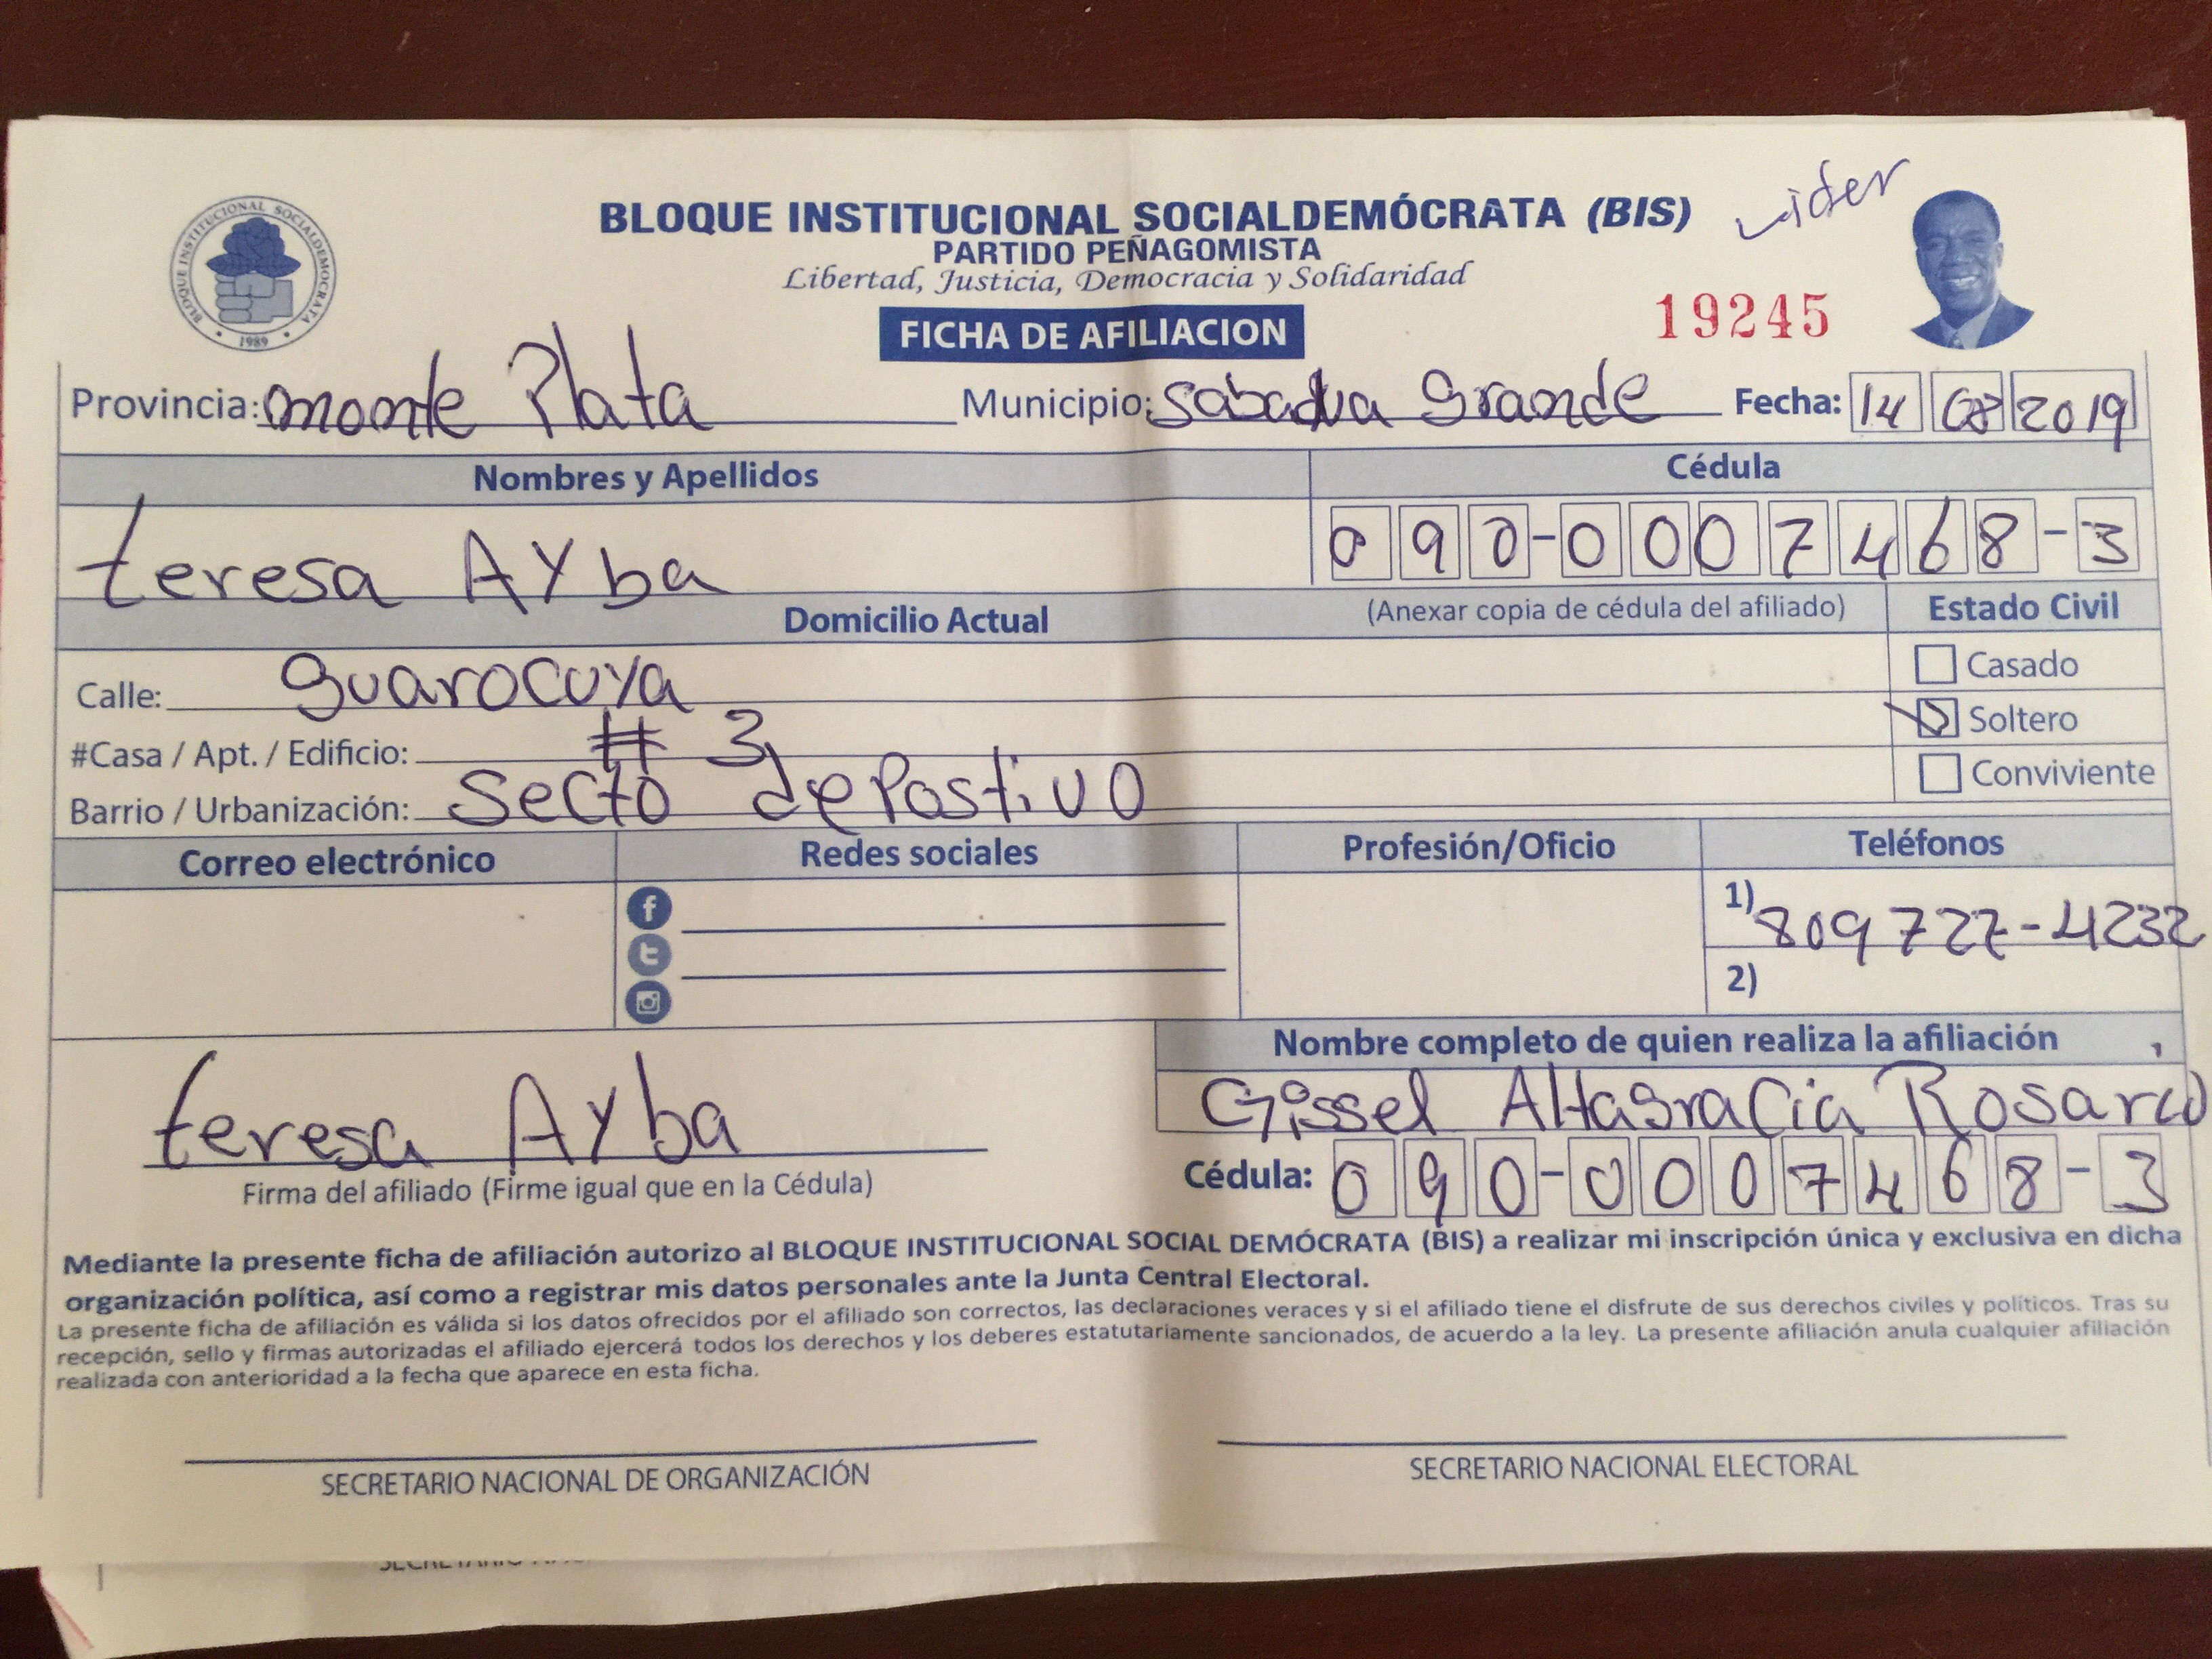 BLOQUE INSTITUCIONAL SOCIALDEMÓCRATA (BIS)
Lider
PARTIDO PEÑAGOMISTA
Libertad, Justicia, Democracia y Solidaridad
BLOQUE INSTITUCIONAL SOCIALDEMOCRATA
1989
FICHA DE AFILIACION
19245
Provincia: monte Plata Municipio: Sabadua Grande Fecha: 14 08 2019
Nombres y Apellidos Cédula
teresa AYba 090-0007468-3
Domicilio Actual (Anexar copia de cédula del afiliado) Estado Civil
Calle: guarocuya Casado
#Casa / Apt. / Edificio: # 3 Soltero
Barrio / Urbanización: Secto dePostivo Conviviente
Correo electrónico Redes sociales Profesión/Oficio Teléfonos
1) 809 727-4232
2)
Nombre completo de quien realiza la afiliación
teresa AYba Gissel Altagracia Rosario
Firma del afiliado (Firme igual que en la Cédula) Cédula: 090-0007468-3
Mediante la presente ficha de afiliación autorizo al BLOQUE INSTITUCIONAL SOCIAL DEMÓCRATA (BIS) a realizar mi inscripción única y exclusiva en dicha
organización política, así como a registrar mis datos personales ante la Junta Central Electoral.
La presente ficha de afiliación es válida si los datos ofrecidos por el afiliado son correctos, las declaraciones veraces y si el afiliado tiene el disfrute de sus derechos civiles y políticos. Tras su
recepción, sello y firmas autorizadas el afiliado ejercerá todos los derechos y los deberes estatutariamente sancionados, de acuerdo a la ley. La presente afiliación anula cualquier afiliación
realizada con anterioridad a la fecha que aparece en esta ficha.
SECRETARIO NACIONAL DE ORGANIZACIÓN SECRETARIO NACIONAL ELECTORAL